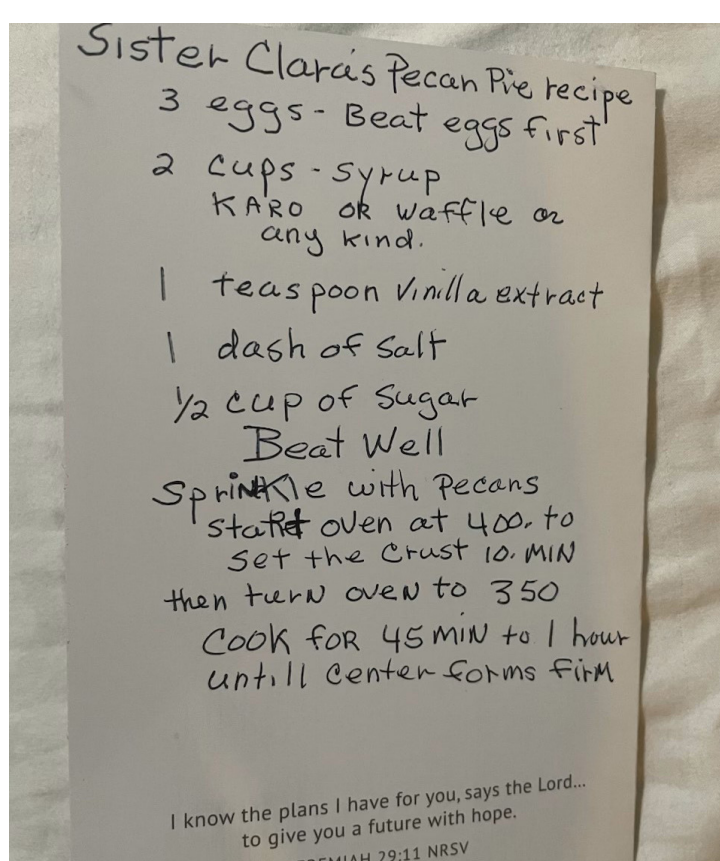 Sister Clara's Pecan Pie recipe
3 eggs - Beat eggs first
2 cups - syrup
KARO OR waffle or
any kind.
1 teaspoon Vinilla extract
1 dash of Salt
1/2 cup of Sugar
Beat Well
Sprinkle with Pecans
Start oven at 400. to
Set the Crust 10. MIN
then turn oven to 350
COOK for 45 MIN to 1 hour
untill Center forms firm
I know the plans I have for you, says the Lord...
to give you a future with hope.
29:11 NRSV